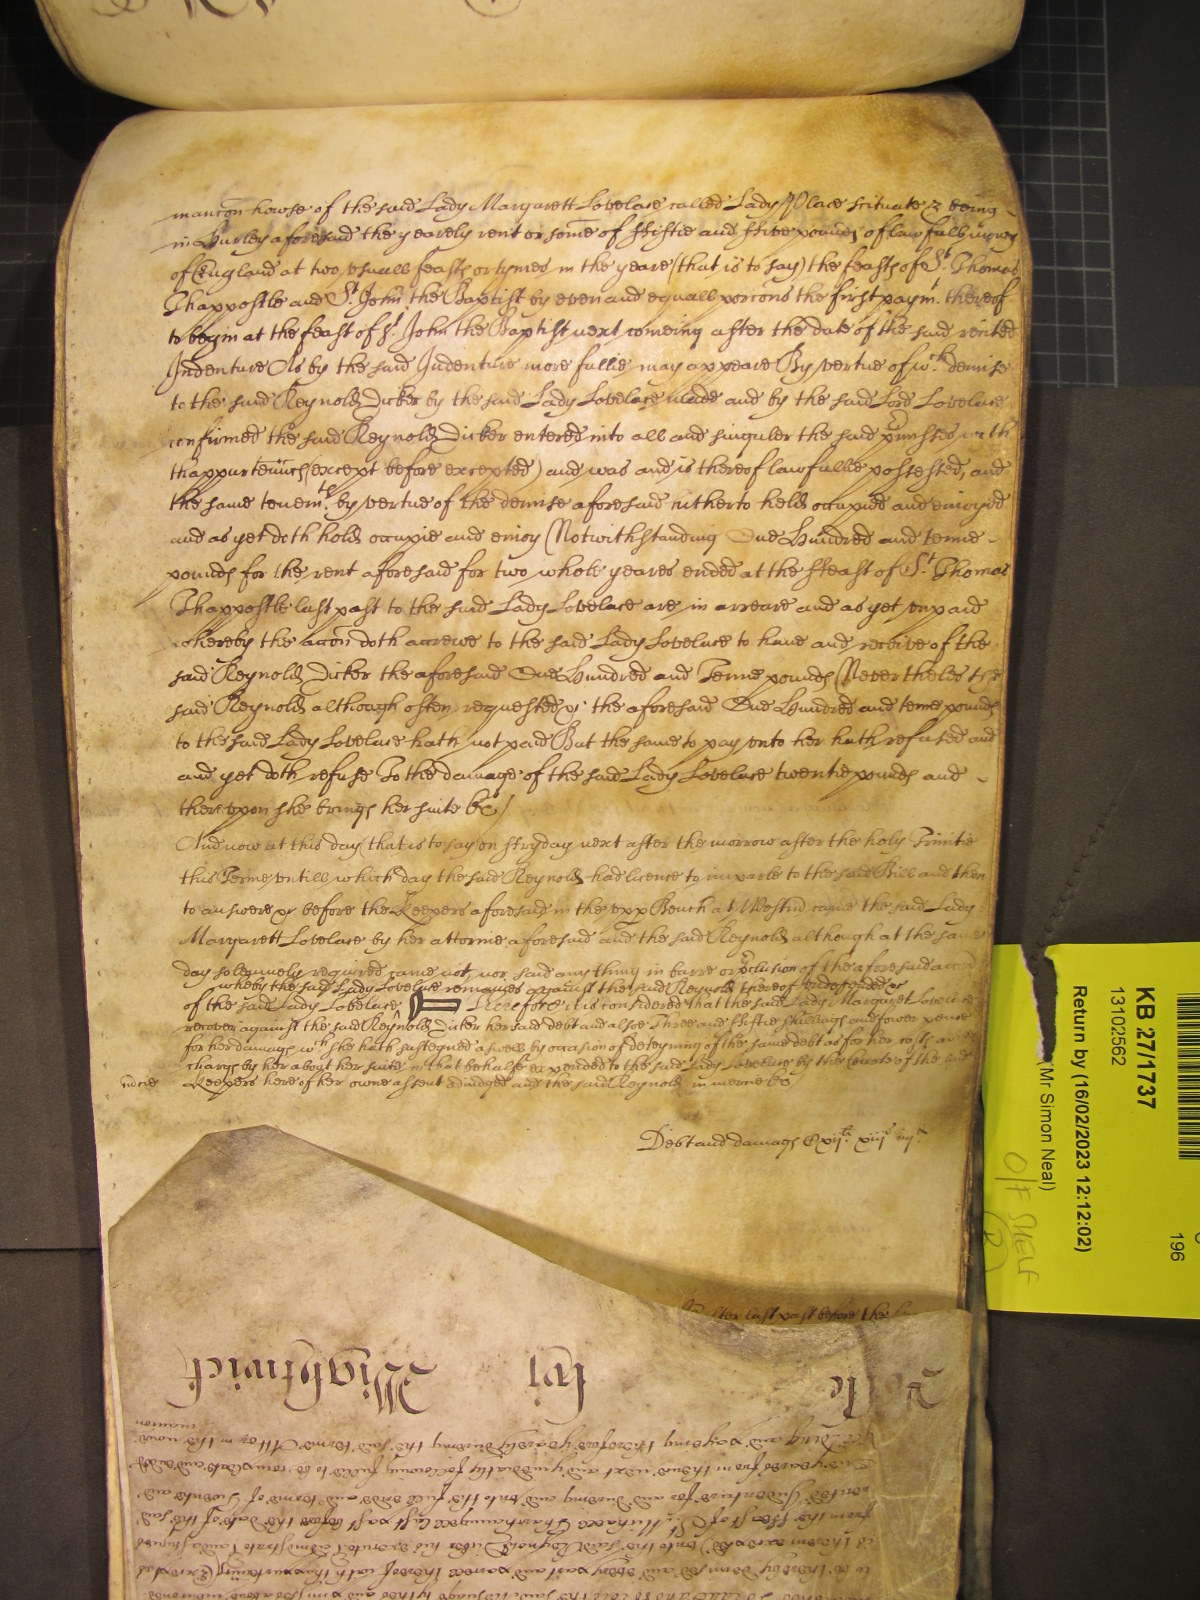 mancon howse of the said Lady Margarett Lovelace called Lady Place scituate & being
in Hurley aforesaid the yearely rent or some of ffiftie and ffive pounds of lawfull money
of England at two usuall feasts or tymes in the yeare (that is to say) the feasts of St. Thomas
Thappostle and St. John the Baptist by even and equall porcons the first paymt. thereof
to begin at the feast of St. John the Baptist next comeing after the date of the said recited
Indenture As by the said Indenture more fullie may appeare By vertue of wch. demise
to the said Reynold Dicker by the said Lady Lovelace made and by the said Lord Lovelace
confirmed the said Reynold Dicker entered into all and singuler the said pmisses with
thappurtenncs (except before excepted) and was and is thereof lawfullie possessed, and
the same tenemts. by vertue of the demise aforesaid hitherto held occupied and enioyed
and as yet doth hold occupie and enioy (Notwithstanding One Hundred and tenne
pounds for the rent aforesaid for two whole yeares ended at the ffeast of St. Thomas
Thappostle last past to the said Lady Lovelace are in arreare and as yet unpaid
whereby the accon doth accrewe to the said Lady Lovelace to have and receive of the
said Reynold Dicker the aforesaid One Hundred and Tenne pounds (Neverthelés the
said Reynold although often requested &c the aforesaid One Hundred and tenne pounds
to the said Lady Lovelace hath not paid But the same to pay unto her hath refused and
and yet doth refuse To the damage of the said Lady Lovelace twentie pounds and
thereupon she brings her suite &c /
And now at this day (that is to say) on ffryday next after the morrow after the holy Trinitie
this Terme untill which day the said Reynold had licence to imparle to the said Bill and then
to answere &c before the Keepers aforesaid in the upp Bench at Westm came the said Lady
Margarett Lovelace by her attornie aforesaid and the said Reynold although at the same
day solemnely required came not, nor said any thing in barre or pclusion of the aforesaid accon
wheby the said Lady Lovelace remaines against the said Reynold thereof undefended &c
of the said Lady Lovelace Therefore it is considered that the said Lady Margaret Lovelace
recover against the said Reynold Dicker her said debt and alsoe Three and ffiftie shillings and fower pence
for her damags wch she hath susteyned aswell by occasion of deteyning of the same debt as for her costs and
chargs by her about her suite in that behalfe expended to the said Lady Lovelace by the Courte of the said
Keepers here of her owne assent adiudged and the said Reynold in mercie &c
mercie
Debt and damags Cxijli. xiijs iiijd
last past before the
Wightwick
mancon
yeilding and paying therefore yearely during the said terme All or in the now
yeares from thence next and imediatly following fully to be compleate and ended
recited Indenture for and during and unto the full ende and terme of Twentie and
from the ffeast of St. Michaell Tharchangell last past before the date of the said
Reynold Dicker his executors administrators and assignes
KB 27/1737
13102562
Return by (16/02/2023 12:12:02)
(Mr Simon Neal)
O/F SHELF
196